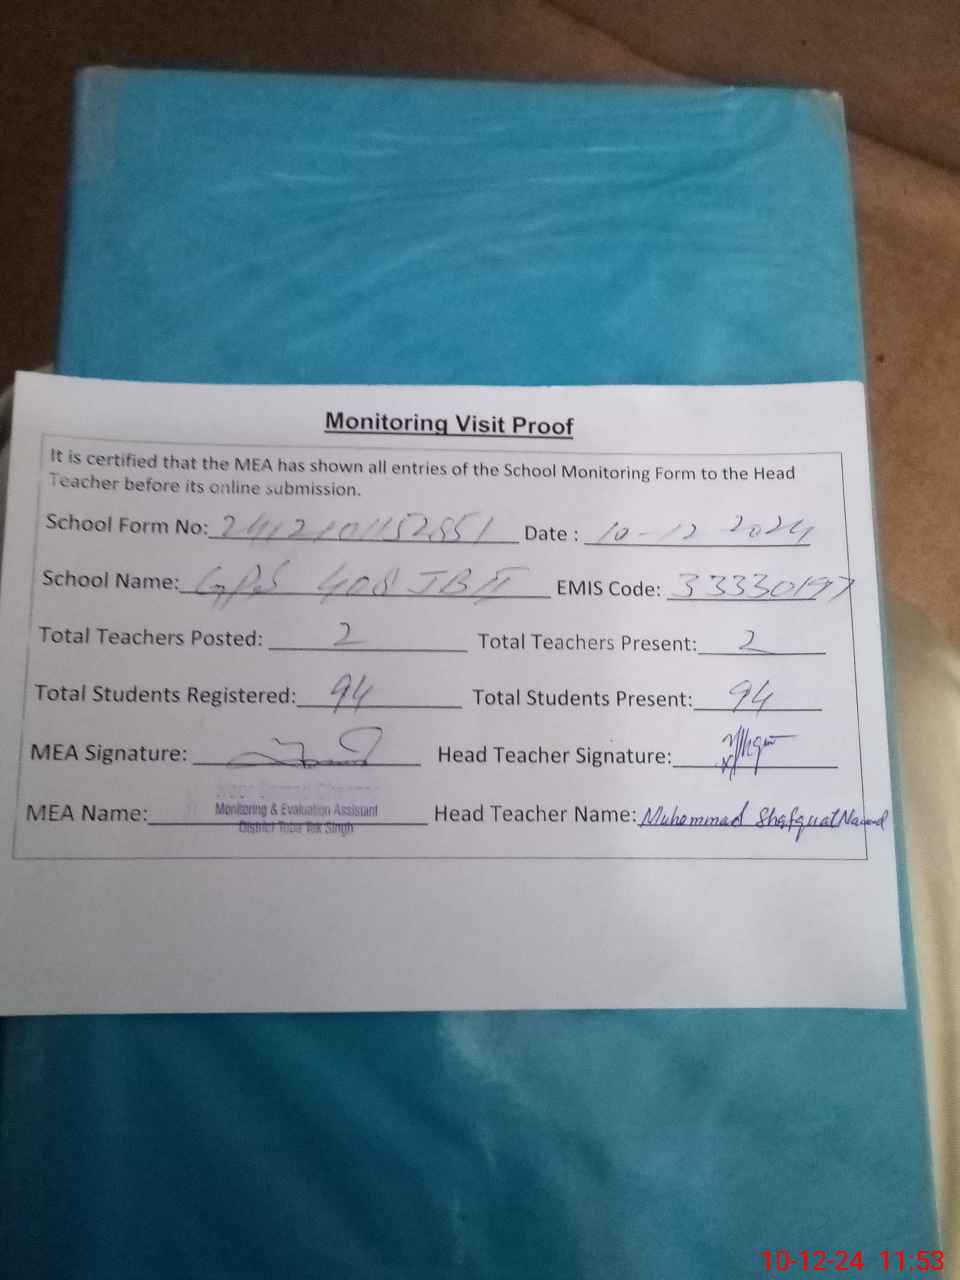 Monitoring Visit Proof
It is certified that the MEA has shown all entries of the School Monitoring Form to the Head
Teacher before its online submission.
School Form No: 2412101152551 Date : 10-12 2024
School Name: GPS 408 JB II EMIS Code: 33330197
Total Teachers Posted: 2 Total Teachers Present: 2
Total Students Registered: 94 Total Students Present: 94
MEA Signature: Head Teacher Signature:
Monitoring & Evaluation Assistant
MEA Name: Head Teacher Name: Muhammad Shafquat
District Toba Tek Singh
10-12-24 11:53